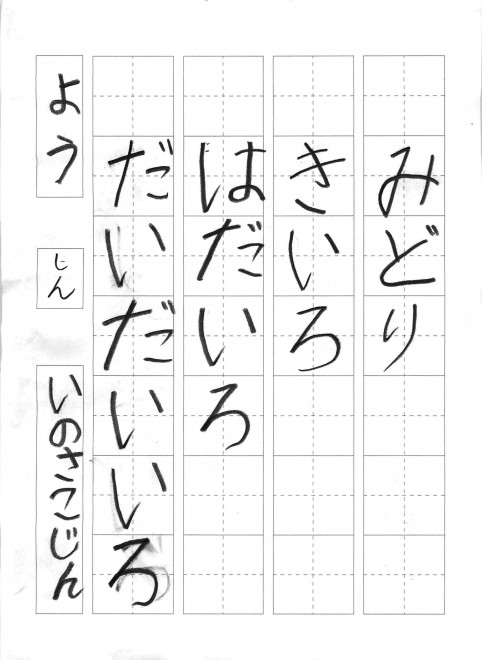 みどり
きいろ
はだいろ
だいだいいろ
よう
じん
いのさこじん